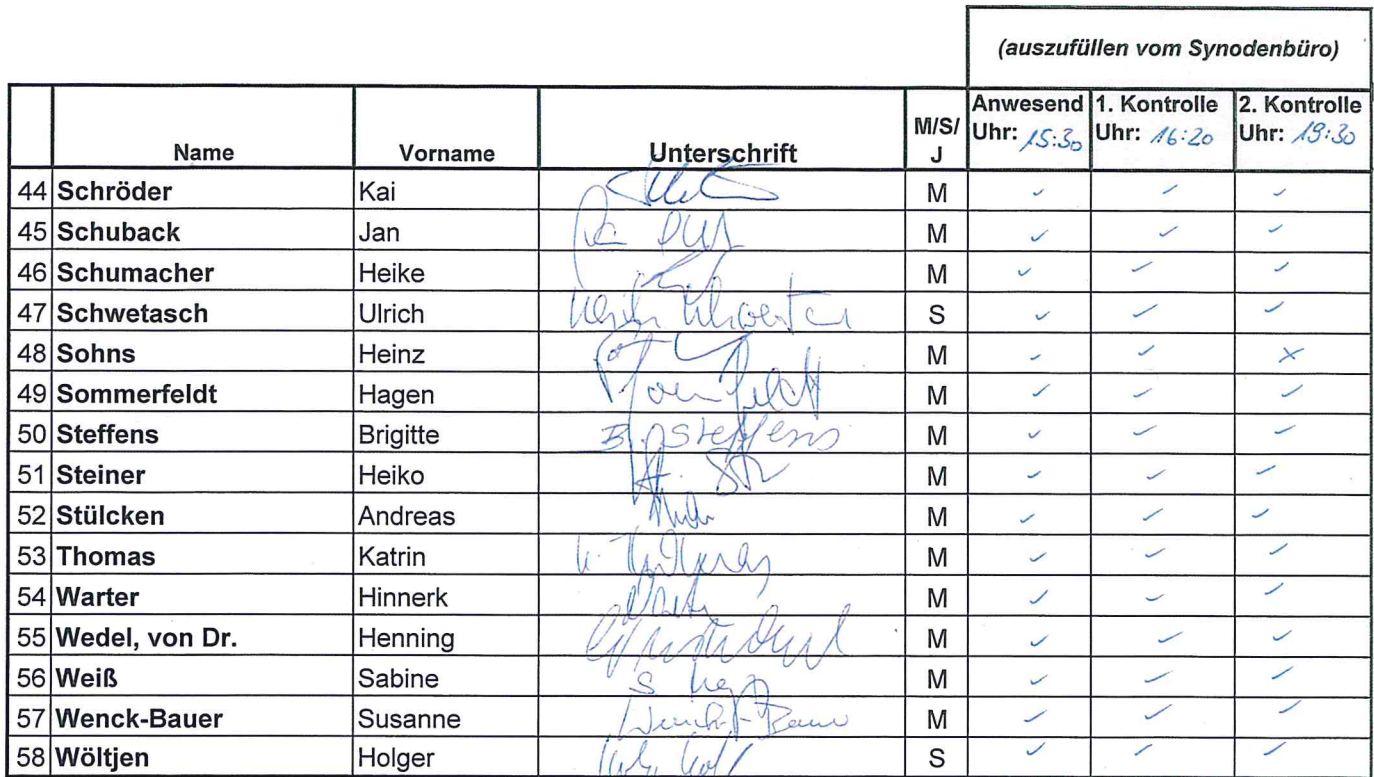 (auszufüllen vom Synodenbüro)
Name Vorname Unterschrift M/S/J Anwesend Uhr: 15:30 1. Kontrolle Uhr: 16:20 2. Kontrolle Uhr: 19:30
44 Schröder Kai M ✓ ✓ ✓
45 Schuback Jan M ✓ ✓ ✓
46 Schumacher Heike M ✓ ✓ ✓
47 Schwetasch Ulrich S ✓ ✓ ✓
48 Sohns Heinz M ✓ ✓ ×
49 Sommerfeldt Hagen M ✓ ✓ ✓
50 Steffens Brigitte B. Steffens M ✓ ✓ ✓
51 Steiner Heiko M ✓ ✓ ✓
52 Stülcken Andreas M ✓ ✓ ✓
53 Thomas Katrin M ✓ ✓ ✓
54 Warter Hinnerk M ✓ ✓ ✓
55 Wedel, von Dr. Henning M ✓ ✓ ✓
56 Weiß Sabine M ✓ ✓ ✓
57 Wenck-Bauer Susanne Wenck-Bauer M ✓ ✓ ✓
58 Wöltjen Holger S ✓ ✓ ✓